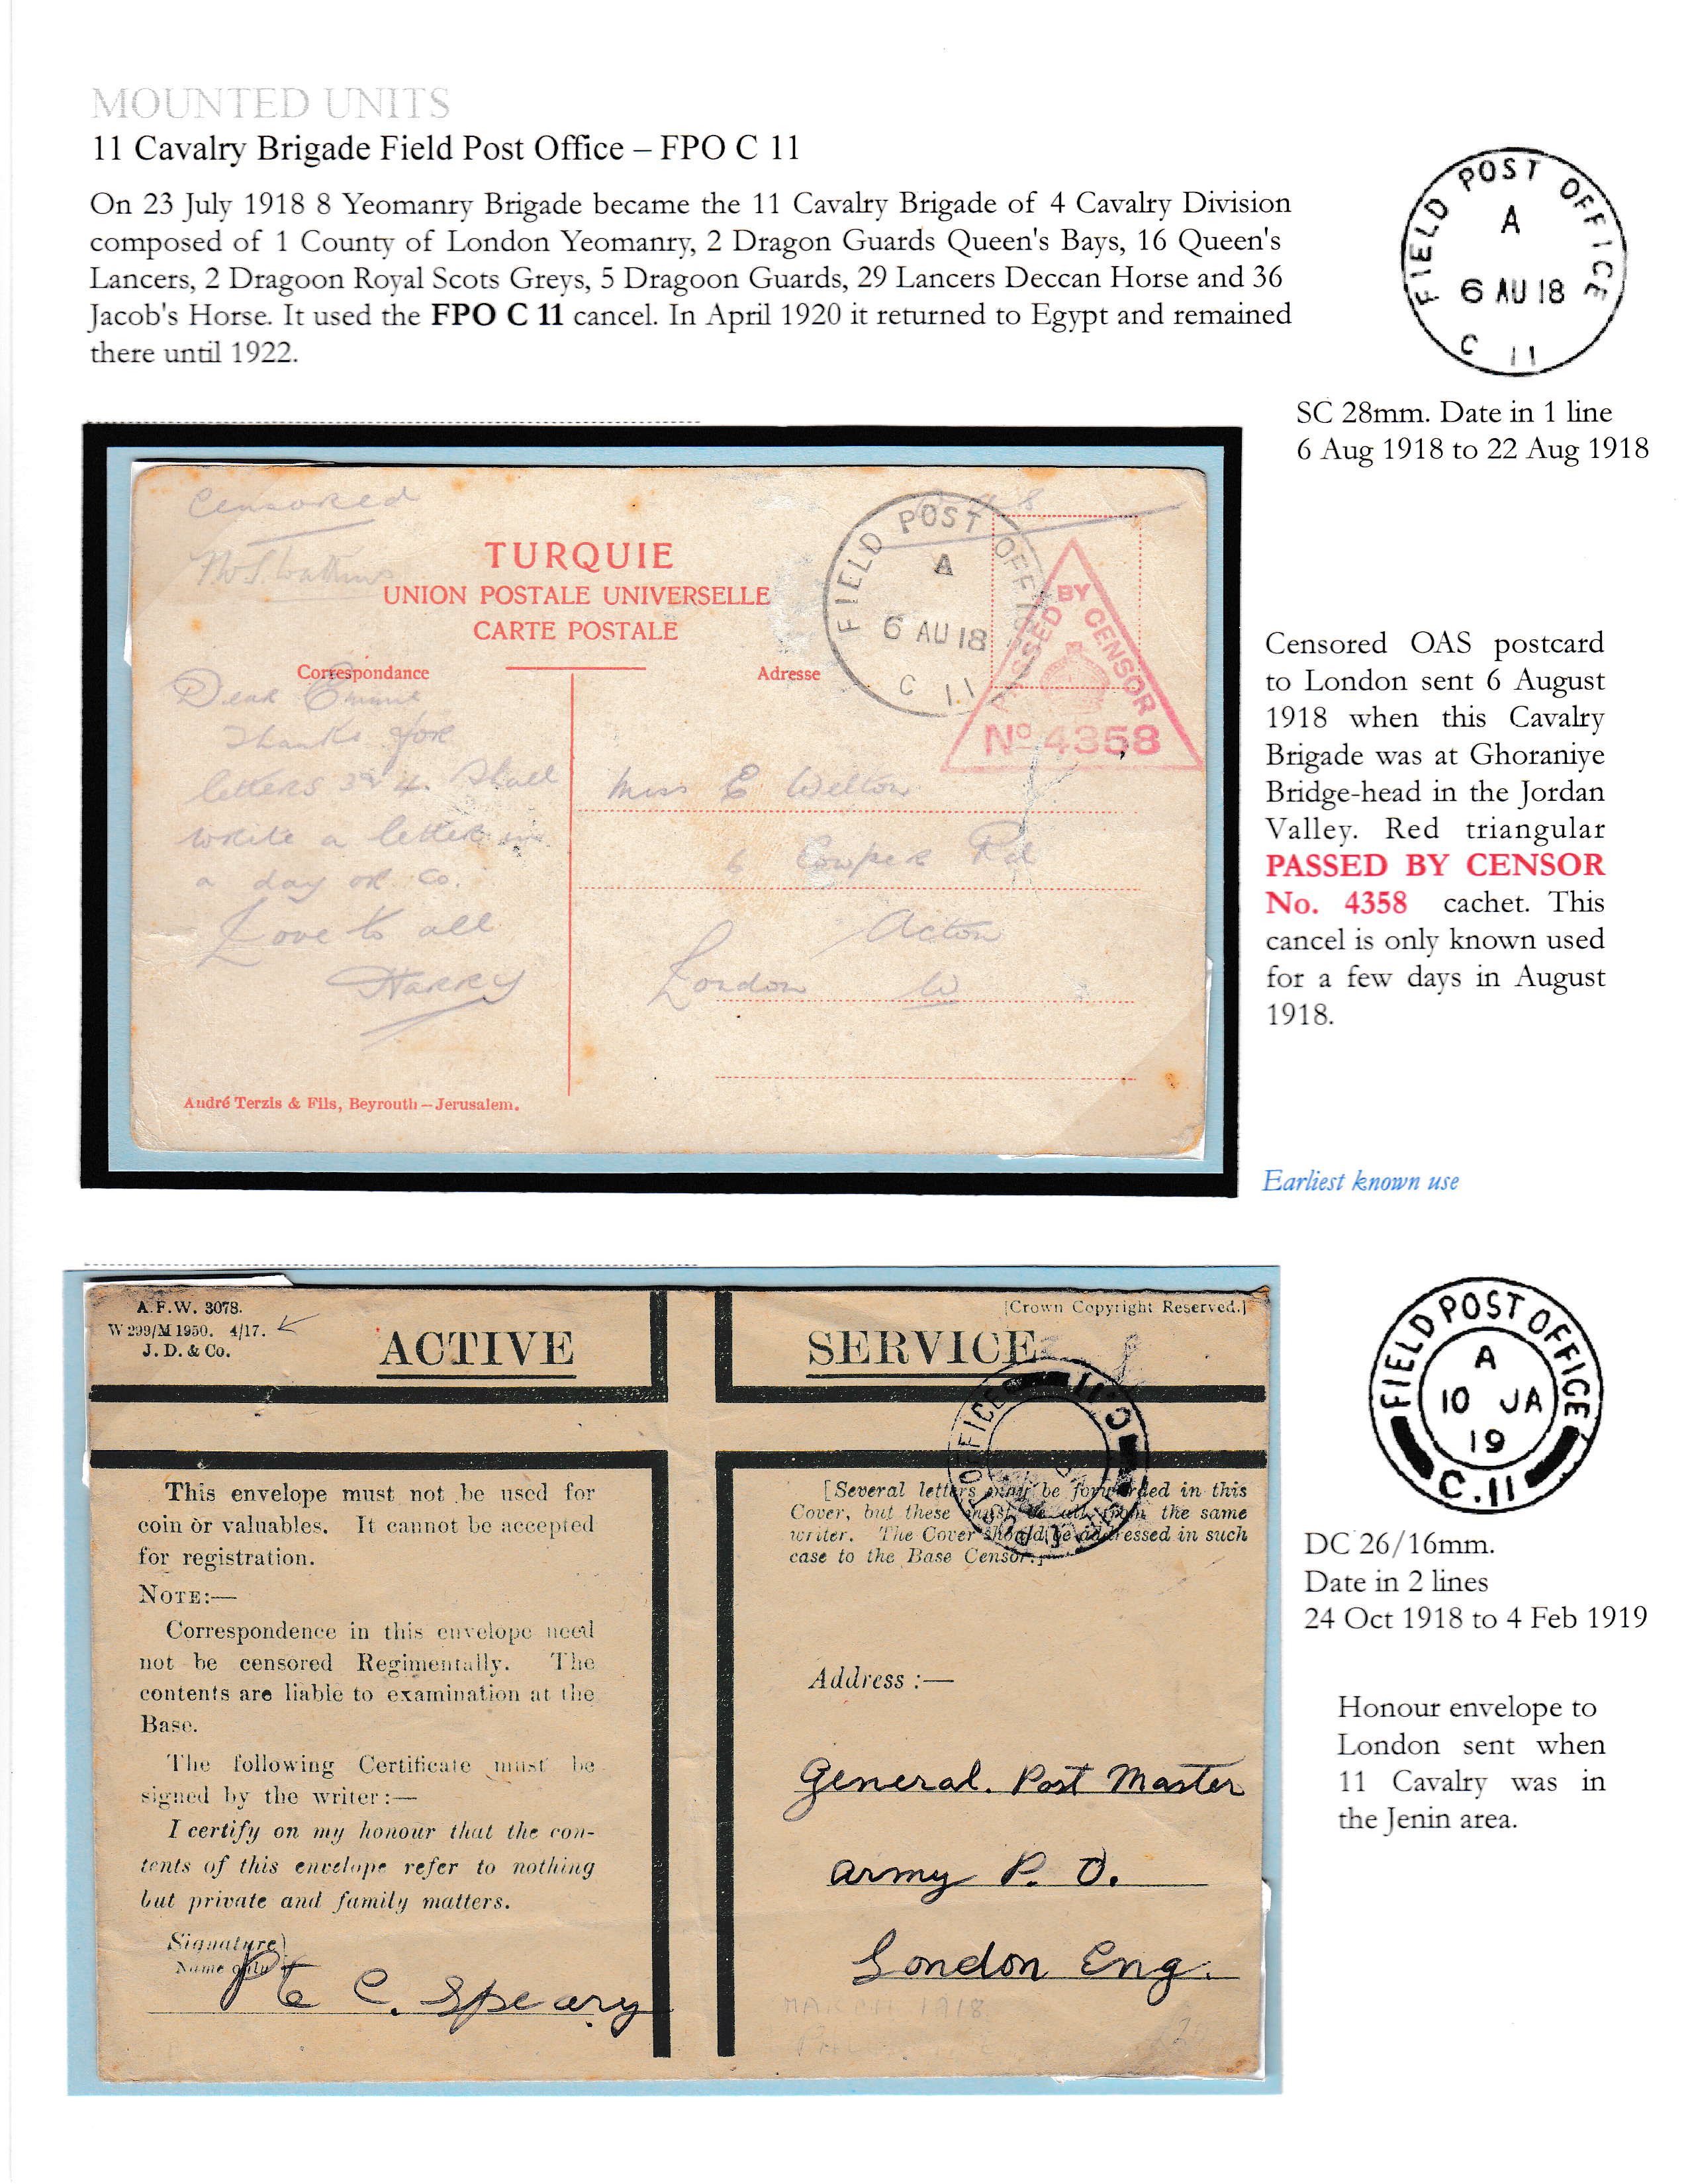 MOUNTED UNITS
11 Cavalry Brigade Field Post Office – FPO C 11
On 23 July 1918 8 Yeomanry Brigade became the 11 Cavalry Brigade of 4 Cavalry Division
composed of 1 County of London Yeomanry, 2 Dragon Guards Queen's Bays, 16 Queen's
Lancers, 2 Dragoon Royal Scots Greys, 5 Dragoon Guards, 29 Lancers Deccan Horse and 36
Jacob's Horse. It used the FPO C 11 cancel. In April 1920 it returned to Egypt and remained
there until 1922.
FIELD POST OFFICE
A
6 AU 18
C 11
SC 28mm. Date in 1 line
6 Aug 1918 to 22 Aug 1918
Censored
TURQUIE
UNION POSTALE UNIVERSELLE
CARTE POSTALE
Correspondance
Adresse
FIELD POST OFFICE
A
6 AU 18
C 11
PASSED BY CENSOR
No 4358
Dear Emmie
Thanks for
letters 3 & 4. Shall
write a letter in
a day or so.
Love to all
Harry
Miss E Welton
6 Cowper Rd
Acton
London W
André Terzis & Fils, Beyrouth – Jerusalem.
Censored OAS postcard
to London sent 6 August
1918 when this Cavalry
Brigade was at Ghoraniye
Bridge-head in the Jordan
Valley. Red triangular
PASSED BY CENSOR
No. 4358 cachet. This
cancel is only known used
for a few days in August
1918.
Earliest known use
A.F.W. 3078.
W 299/M 1950. 4/17.
J. D. & Co.
[Crown Copyright Reserved.]
ACTIVE SERVICE
C.11
This envelope must not be used for
coin or valuables. It cannot be accepted
for registration.
NOTE:—
Correspondence in this envelope need
not be censored Regimentally. The
contents are liable to examination at the
Base.
The following Certificate must be
signed by the writer:—
I certify on my honour that the con-
tents of this envelope refer to nothing
but private and family matters.
Signature
Name only
Pte C. Speary
[Several letters may be forwarded in this
Cover, but these must be all from the same
writer. The Cover should be addressed in such
case to the Base Censor.]
Address :—
General. Post Master
Army P. O.
London Eng.
MARCH 1918
FIELD POST OFFICE
A
10 JA
19
C.11
DC 26/16mm.
Date in 2 lines
24 Oct 1918 to 4 Feb 1919
Honour envelope to
London sent when
11 Cavalry was in
the Jenin area.